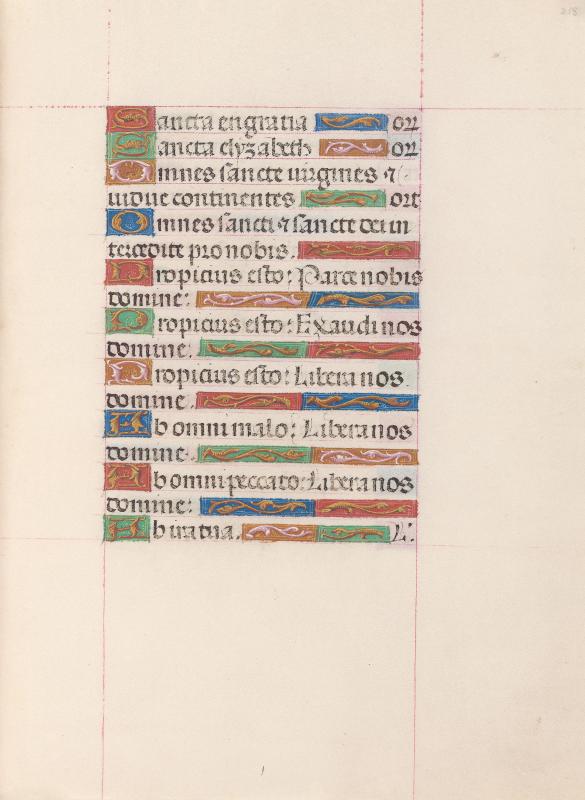 218
Sancta engratia orȝ
Sancta elyzabeth orȝ
Omnes sancte uirgines ⁊
uidue continentes ore
Omnes sancti ⁊ sancte dei in
tercedite pro nobis.
Propicius esto: Parce nobis
domine:
Propicius esto: Exaudi nos
domine.
Propicius esto: Libera nos
domine.
Ab omni malo: Libera nos
domine.
Ab omni peccato: Libera nos
domine:
Ab ira tua. L.